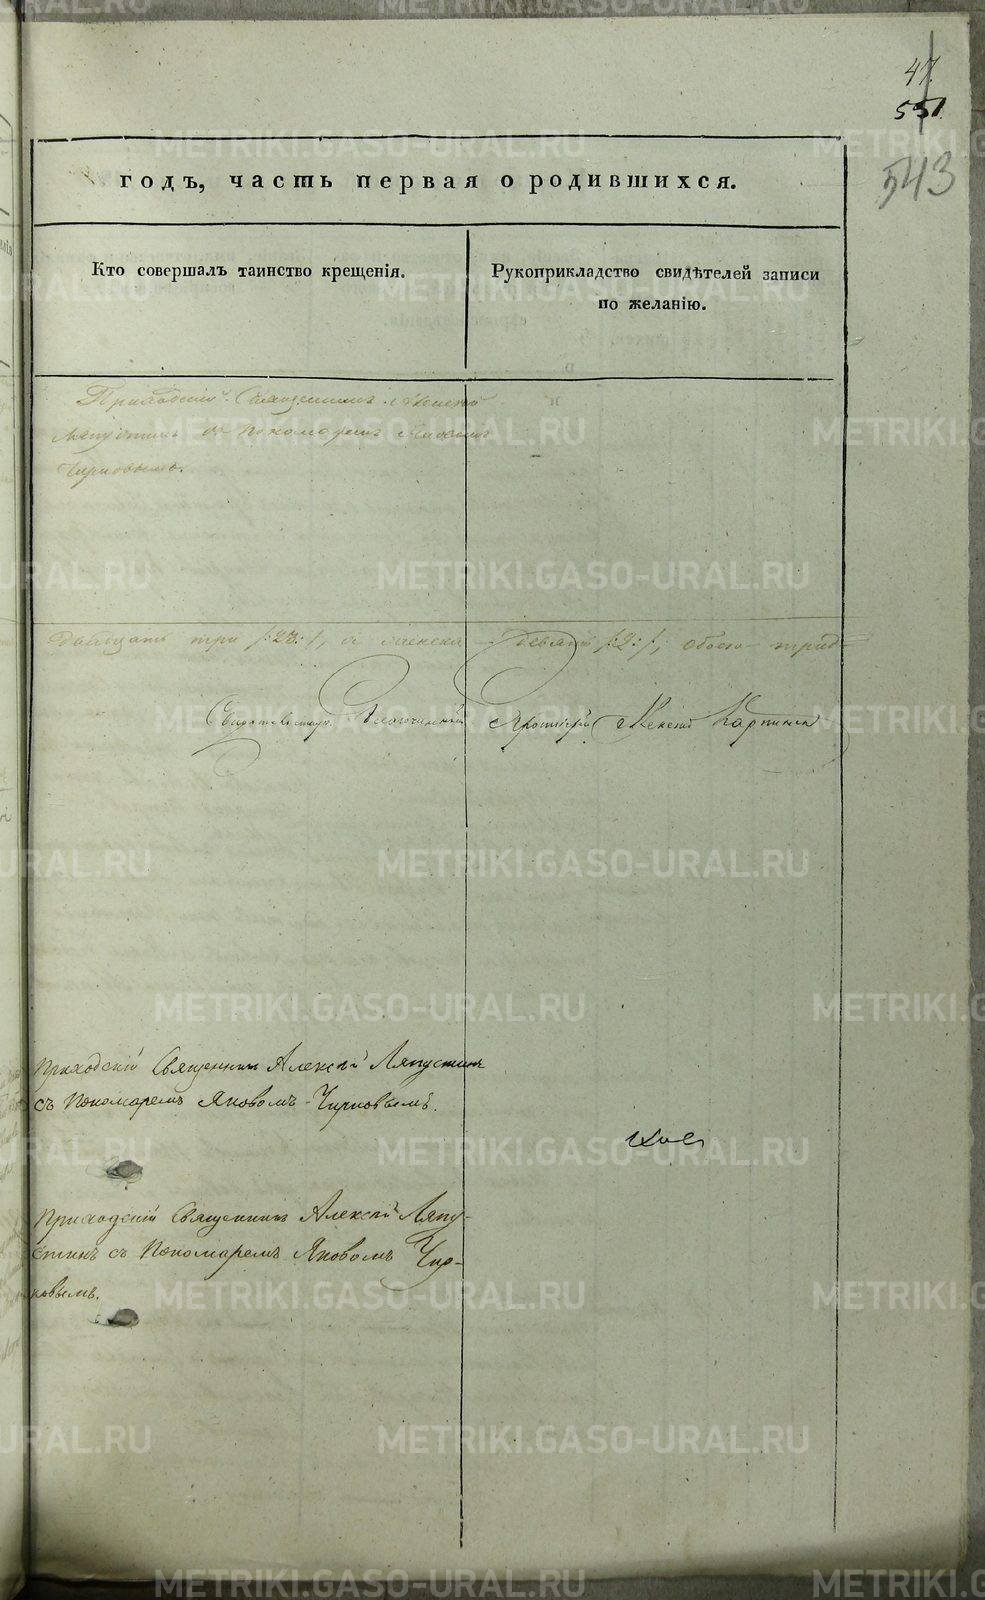 47.
551.
543
годъ, часть первая о родившихся.
Кто совершалъ таинство крещенія.
Рукоприкладство свидѣтелей записи
по желанію.
Приходскій Священникъ Алексій
Ляпустинъ съ Пономаремъ Яковомъ
Чирковымъ.
двадцать три /:23:/, а женска девять /:9:/, обоего трид-
Свидѣтельствую. Благочинный Протоіерей Алексій Карпинскій
Приходскій Священникъ Алексій Ляпустинъ
съ Пономаремъ Яковомъ Чирковымъ.
Приходскій Священникъ Алексій Ляпу-
стинъ съ Пономаремъ Яковомъ Чир-
ковымъ.
METRIKI.GASO-URAL.RU